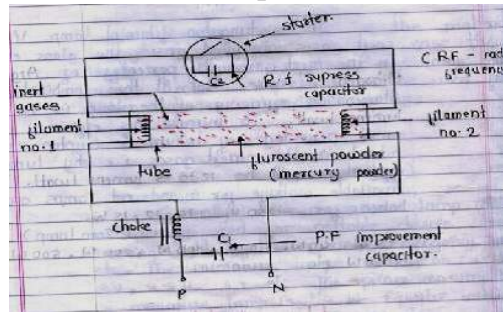 starter.
C2
R.f supress
capacitor
(RF - rad
frequency
inert
gases
filament
no. 1
filament
no. 2
tube
fluroscent powder
(mercury powder)
choke
C1
P.F improvement
capacitor.
P
N